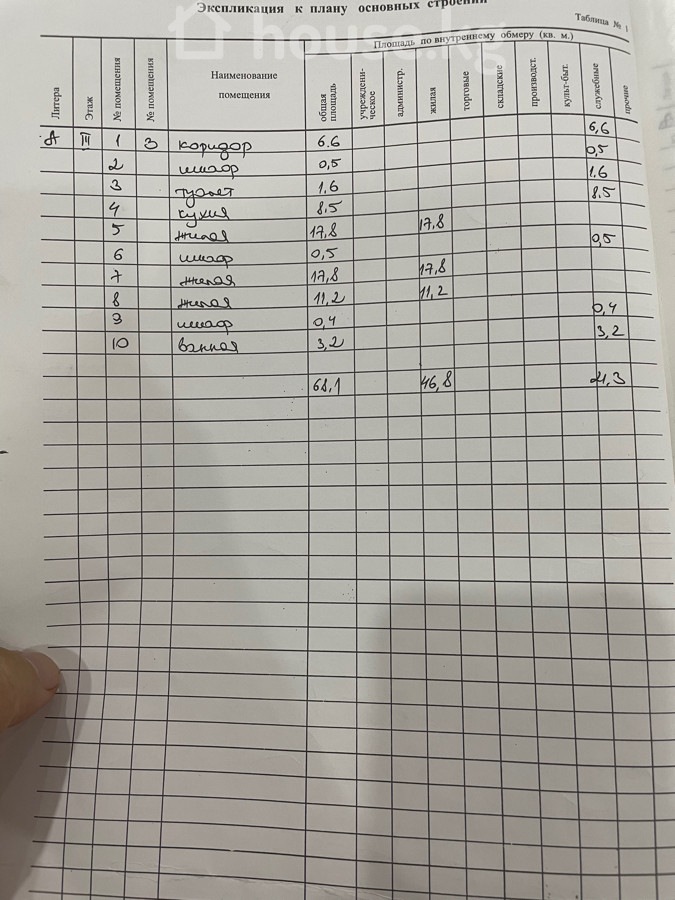 Экспликация к плану основных строений
Таблица № 1
house.kg
Литера Этаж № помещения № помещения Наименование помещения Площадь по внутреннему обмеру (кв. м.)
общая площадь учреждени-ческое администр. жилая торговые складские производст. культ-быт. служебные прочие
А III 1 3 коридор 6.6 6,6
2 шкаф 0,5 0,5
3 туалет 1.6 1.6
4 кухня 8.5 8.5
5 жилая 17,8 17,8
6 шкаф 0,5 0,5
7 жилая 17,8 17,8
8 жилая 11,2 11,2
9 шкаф 0,4 0,4
10 ванная 3,2 3,2
68,1 46,8 21,3